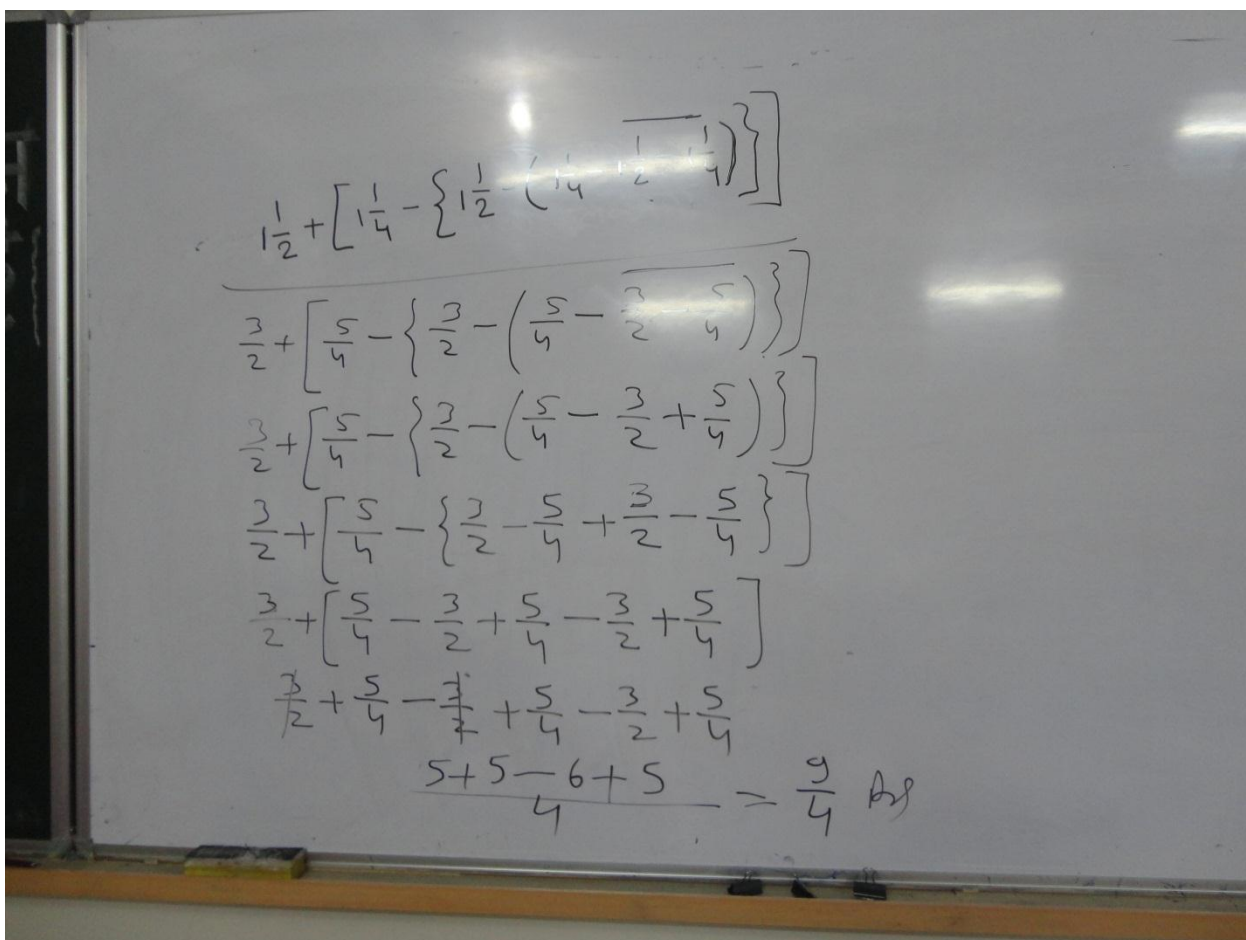 1 1/2 + [1 1/4 - {1 1/2 - (1 1/4 - \overline{1 1/2 - 1 1/4})}]
3/2 + [5/4 - {3/2 - (5/4 - \overline{3/2 - 5/4})}]
3/2 + [5/4 - {3/2 - (5/4 - 3/2 + 5/4)}]
3/2 + [5/4 - {3/2 - 5/4 + 3/2 - 5/4}]
3/2 + [5/4 - 3/2 + 5/4 - 3/2 + 5/4]
3/2 + 5/4 - 3/2 + 5/4 - 3/2 + 5/4
(5+5-6+5)/4 = 9/4 Ans